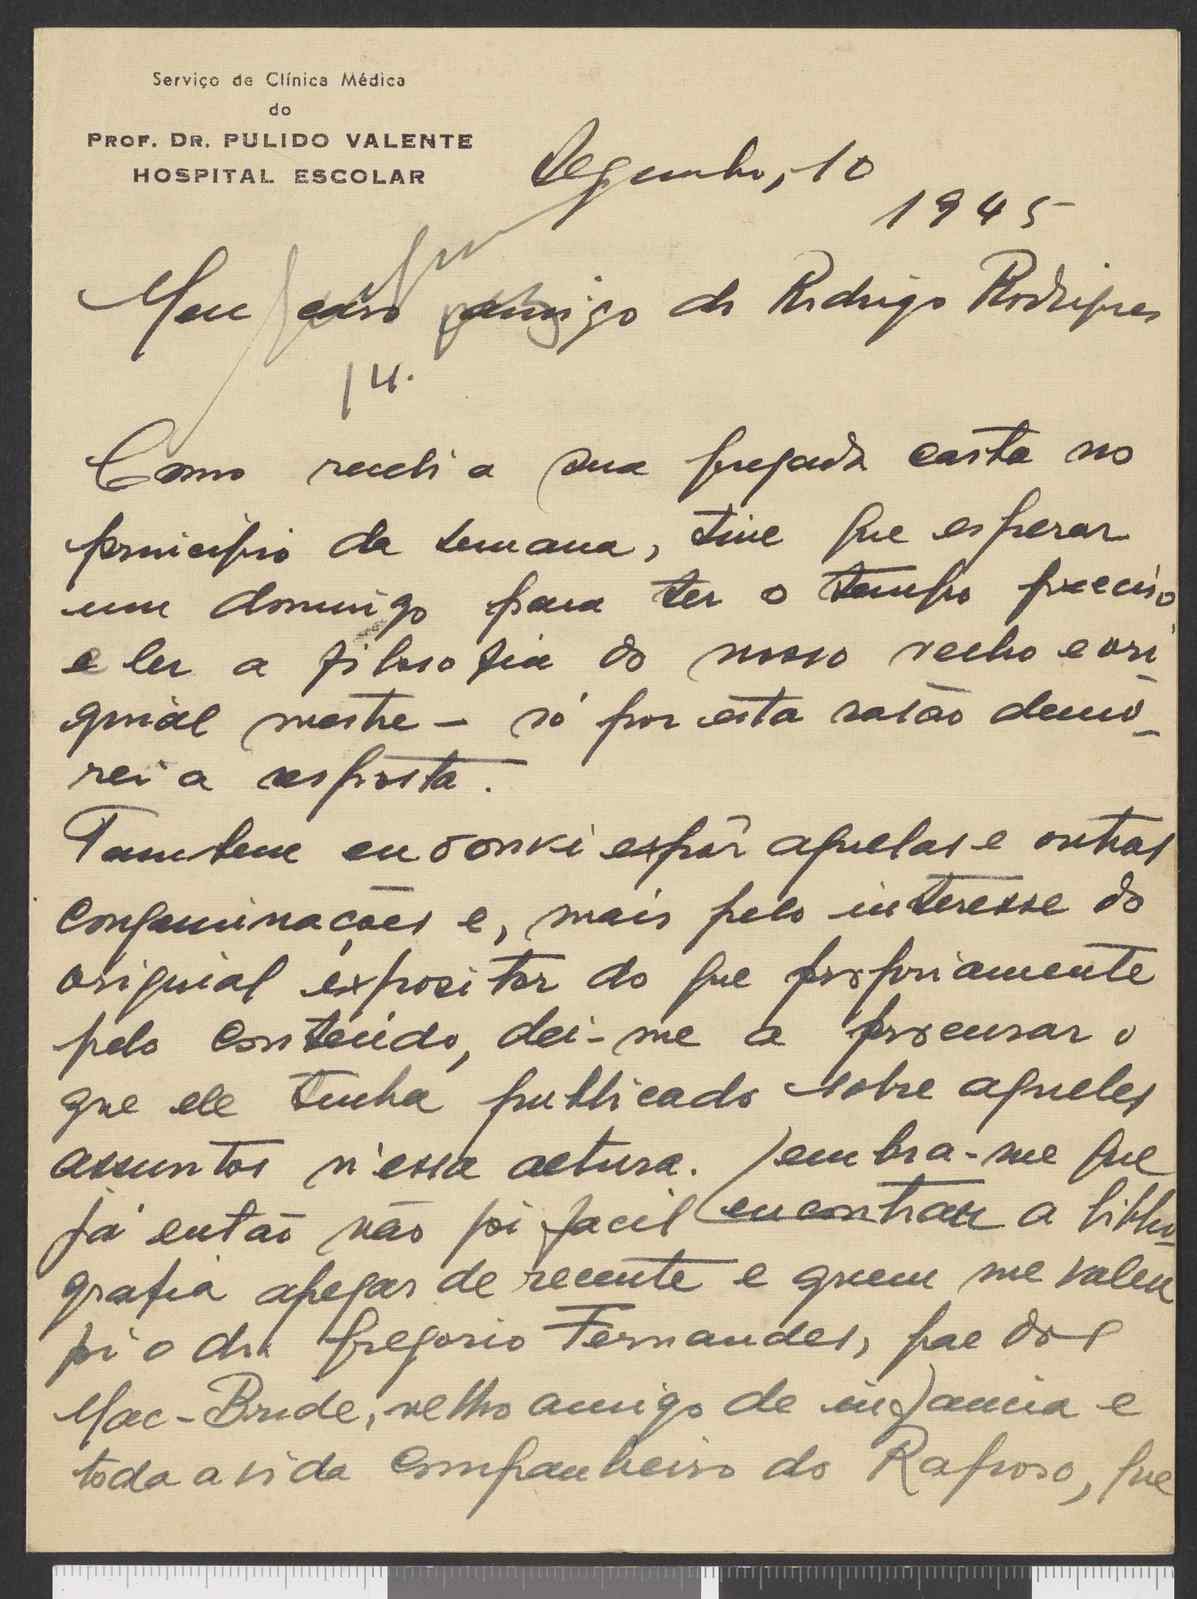 Serviço de Clínica Médica
do
PROF. DR. PULIDO VALENTE
HOSPITAL ESCOLAR
Dezembro, 10
1945
Meu caro amigo dr Rodrigo Rodrigues
14.
Como recebi a sua prezada carta no
principio da semana, tive que esperar
um domingo para ter o tempo preciso
e ler a filosofia do nosso velho e ori
ginal mestre – só por esta rasão demo-
rei a resposta.
Tambem eu ouvi expôr aquelas e outras
congeminações e, mais pelo interesse do
original expositor do que propriamente
pelo conteúdo, dei-me a procurar o
que ele tinha publicado sobre aqueles
assuntos n'essa altura. Lembra-me que
já então não foi facil encontrar a biblio-
grafia apezar de recente e quem me valeu
foi o dr. Gregorio Fernandes, pae dos
Mac-Bride, velho amigo de infancia e
toda a vida companheiro do Raposo, que